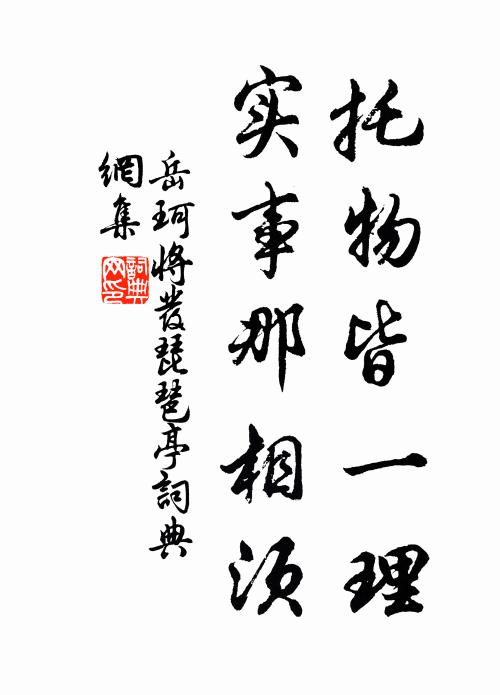 托物皆一理
实事那相须
岳珂将发琵琶亭詞典
網集
詞典網印